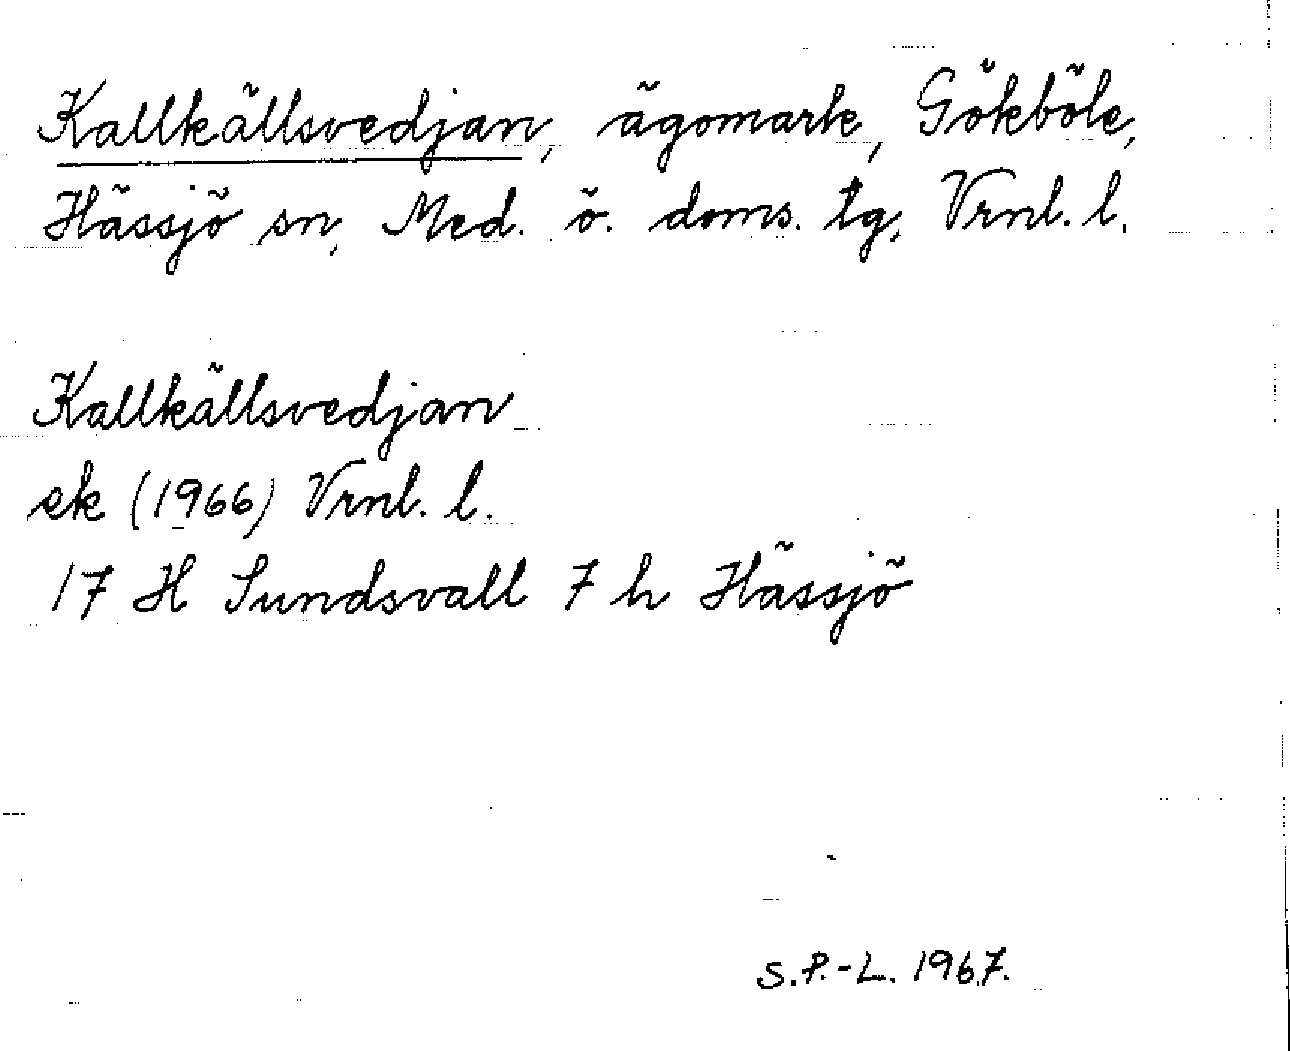 Kallkällsvedjan, ägomark, Gökböle,
Hässjö sn, Med. ö. doms. tg, Vrnl. l.
Kallkällsvedjan
ek (1966) Vrnl. l.
17 H Sundsvall 7 h Hässjö
S.P.-L. 1967.